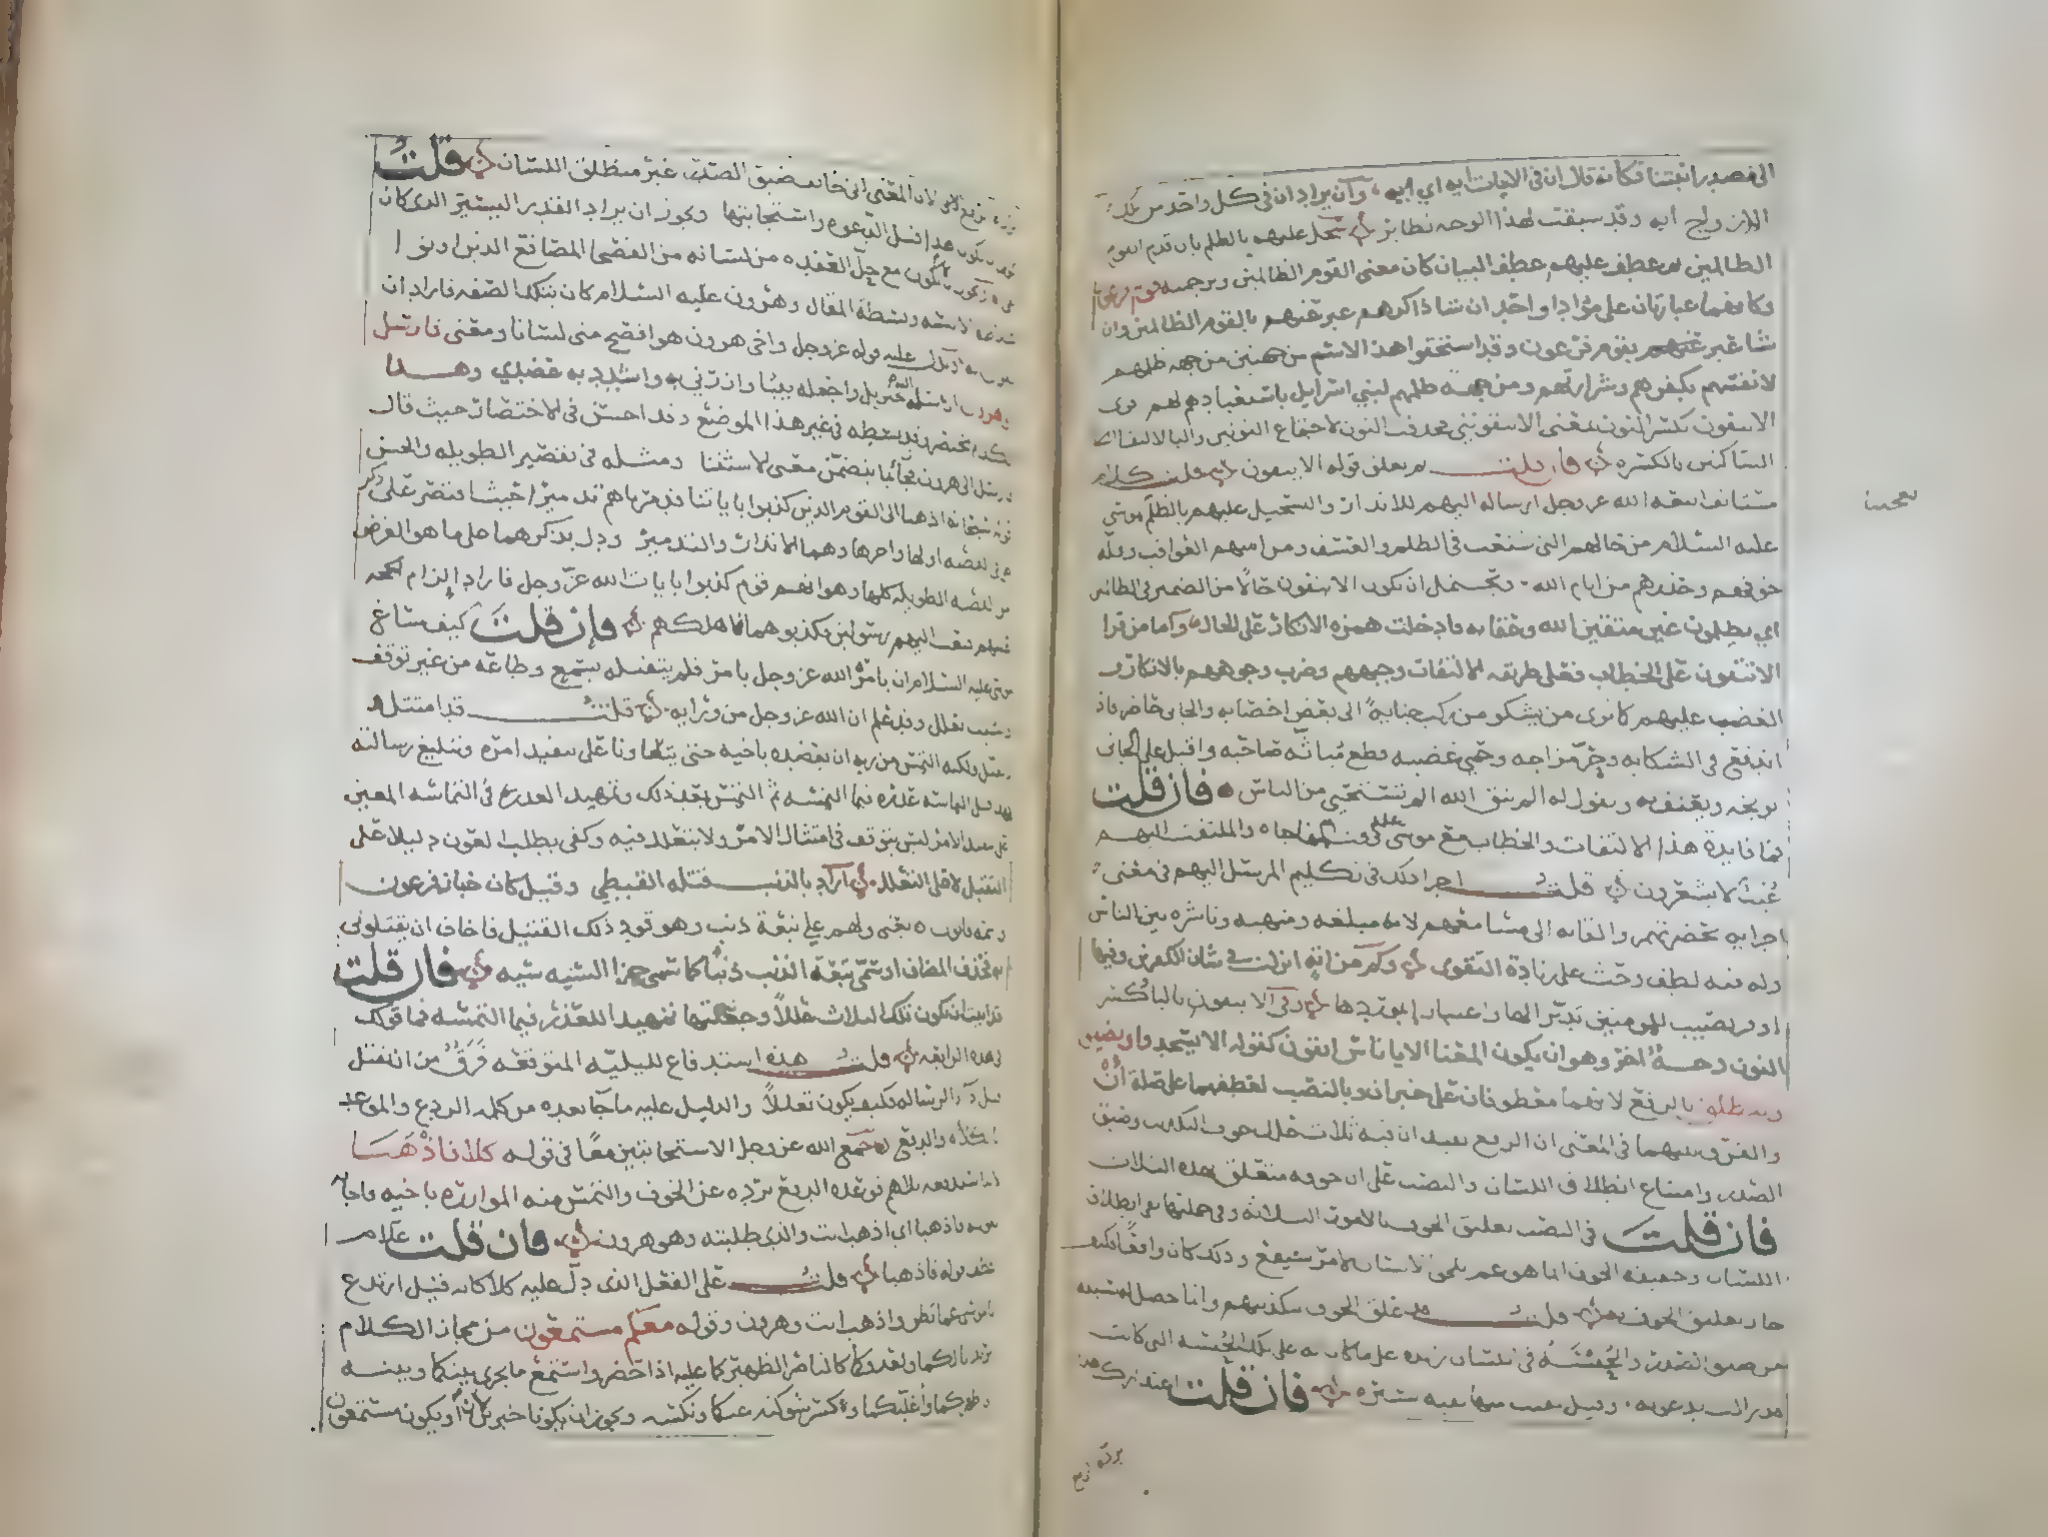 الى مصدر انبتنا فكانه قال ان في الانبات ايه اي ايه وان يراد ان في كل واحد من تلك
الازواج ايه وقد سبقت لهذا الوجه نظاير سجل عليهم بالظلم بان قدم القوم
الظالمين ثم عطفهم عليهم عطف البيان كان معنى القوم الظالمين وترجمته قوم فرعون
وكانهما عبارتان على مؤدا واحد ان شا ذاكرهم عبر عنهم بالقوم الظالمين وان
شا عبر عنهم بقوم فرعون وقد استحقوا هذا الاسم من جهتين من جهه ظلمهم
لانفسهم بكفرهم وشرارتهم ومن جهة ظلمهم لبني اسرايل باستعبادهم لهم قرى
الا يتقون بكسر النون بمعنى الا يتقونني فحذفت النون لاجتماع النونين واليا للاكتفا
بالكسره فان قلت بم تعلق قوله الا يتقون قلت كلام
مستانف اتبعه الله عز وجل ارساله اليهم للانذار والتسجيل عليهم بالظلم موسى
عليه السلام من حالهم التي شنعت في الظلم والعسف ومن امنهم العواقب وقله
خوفهم وحذرهم من ايام الله ويحتمل ان يكون الا يتقون حالا من الضمير في الظالمين
اي يظلمون غير متقين الله وعقابه فادخلت همزه الانكار على الحال واما من قرا
الا تتقون على الخطاب فعلى طريقه الالتفات وجبههم وضرب وجوههم بالانكار و
الغضب عليهم كما ترى من يشكو من ركب جناية الى بعض اخصايه والجاني حاضر فاذا
اندفع في الشكايه وحر مزاجه وحمي غضبه قطع مباثه صاحبه واقبل على الجاني
يوبخه ويعنف به ويقول له الم تتق الله الم تستحيي من الناس فان قلت
فما فايدة هذا الالتفات والخطاب مع موسى عليه في وقت المناجاه والملتفت اليهم
غيب لا يشعرون قلت اجرا ذلك في تكليم المرسل اليهم في معنى
اجرايه بحضرتهم والقايه الى مسامعهم لانه مبلغه ومنهيه وناشره بين الناس
وله فيه لطف وحث على زيادة التقوى وكم من اية انزلت في شان الكفرين وفيها
اوفر نصيب للمومنين تدبرا لها واعتبارا بموردها وفي الا يتقون باليا وكسر
النون وجه اخر وهو ان يكون المعنى الا يا ناس اتقون كقوله الا يسجدوا ويضيق
وينطلق بالرفع لانهما معطوفان على خبر ان وبالنصب لعطفهما على صلة ان
والفرق بينهما في المعنى ان الرفع يفيد ان فيه ثلاث علل خوف التكذيب وضيق
الصدر وامتناع انطلاق اللسان والنصب على ان خوفه متعلق بهذه الثلاث
فان قلت في النصب تعليق الخوف بالامور الثلاثة وفي جملتها نفي انطلاق
اللسان وحقيقه الخوف انما هو غم يلحق الانسان لامر سيقع وذلك كان واقعا فكيف
جاز تعليق الخوف به قلت قد علق الخوف بتكذيبهم وانما حصل له بسببه
من ضيق الصدر والحبسة في اللسان زايده على ما كان به على تلك الحبسه التي كانت
به زالت بدعوته وقيل بقيت منها بقيه يسيره فان قلت اعتذارك هذا
يرده ان رفع
لان المعنى اني خايف ضيق الصدر غير منطلق اللسان قلت
يجوز ان يكون هذا قبل الدعوه واستجابتها ويجوز ان يراد القدر اليسير الذي كان
من لسانه من الفصحا المصاقع الذين اوتوا
السنه وبسطة المقال وهرون عليه السلام كان بتلك الصفه فاراد ان
عليه قوله عز وجل واخي هرون هو افصح مني لسانا ومعنى فارسل
الى هرون ارسل اليه جبريل واجعله نبيا وازرني به واشدد به عضدي وهذا
كلام مختصر وقد بسطه في غير هذا الموضع وقد احسن في الاختصار حيث قال
فارسل الى هرون فجا بما يتضمن معنى الاستنبا ومثله في تقصير الطويله والحسن
قوله سبحانه اذهبا الى القوم الذين كذبوا باياتنا فدمرناهم تدميرا حيث اقتصر على ذكر
طرفي القصه اولها واخرها وهما الانذار والتدمير ودل بذكرهما على ما هو الغرض
من القصه الطويله كلها وهو انهم قوم كذبوا بايات الله عز وجل فاراد الزام الحجه
عليهم فبعث اليهم رسولين فكذبوهما فاهلكهم فان قلت كيف ساغ
لموسى عليه السلام ان يامره الله عز وجل بامر فلم يتقبله بسمع وطاعه من غير توقف
وتشبث بعلل وقد علم ان الله عز وجل من ورايه قلت قد امتثل و
تقبل ولكنه التمس من ربه ان يعضده باخيه حتى يتعاونا على تنفيذ امره وتبليغ رسالته
فمهد قبل التماسه عذره فيما التمسه ثم التمس بعد ذلك وتمهيد العذر في التماسه المعين
على تنفيذ الامر ليس بتوقف في امتثال الامر ولا بتعلل فيه وكفى بطلب العون دليلا على
التقبل لا على التعلل اراد بالذنب قتله القبطي وقيل كان خباز فرعون
واسمه فاتون يعني ولهم علي تبعة ذنب وهو قود ذلك القتيل فاخاف ان يقتلوني
به فحذف المضاف او سمى تبعة الذنب ذنبا كما سمى جزا السيئه سيئه فان قلت
قد ابيت ان يكون تلك الثلاث عللا وجعلتها تمهيدا للعذر فيما التمسه فما قولك
في هذه الرابعه قلت هذه استدفاع للبليه المتوقعه وفرق من ان يقتل
قبل ادا الرساله فكيف يكون تعللا والدليل عليه ما جا بعده من كلمه الردع والموعد
بالكلاه والدفع جمع الله عز وجل الاستجابتين معا في قوله كلا فاذهبا
لانه استدفعه بلاهم فوعده الدفع بردعه عن الخوف والتمس منه الموازره باخيه فاجابه
بقوله فاذهبا اي اذهب انت والذي طلبته وهو هرون فان قلت علام
عطف قوله فاذهبا قلت على الفعل الذي دل عليه كلا كانه قيل ارتدع
يا موسى عما تظن واذهب انت وهرون وقوله معكم مستمعون من مجاز الكلام
يريد انا لكما ولعدوكما كالناصر الظهير لكما عليه اذا حضر واستمع ما يجري بينكما وبينه
فاظهركما واغلبكما وكسر شوكته عنكما ونكسه ويجوز ان يكونا خبرين لان او يكون مستمعون